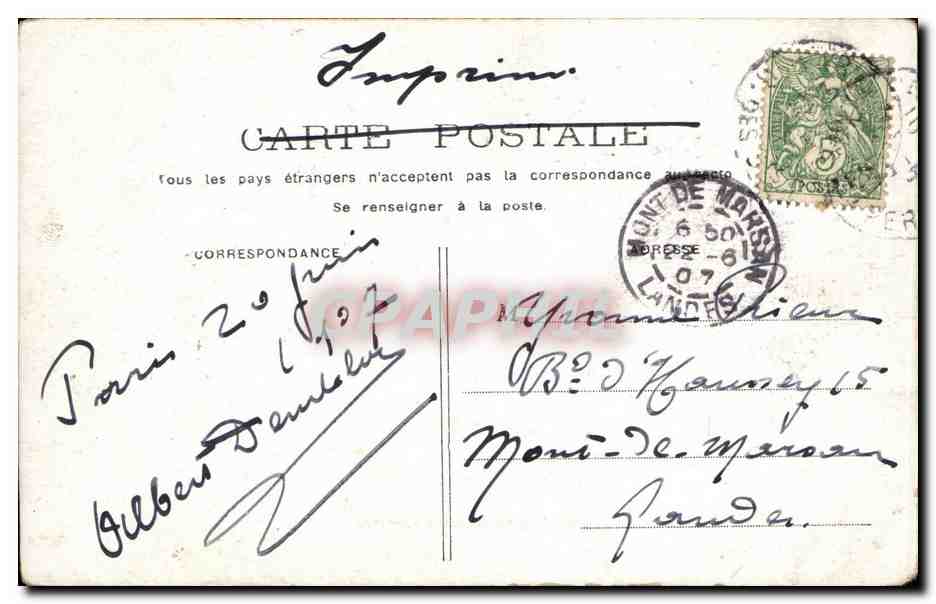 Imprimé
CARTE POSTALE
Tous les pays étrangers n'acceptent pas la correspondance au recto
Se renseigner à la poste.
CORRESPONDANCE
ADRESSE
MONT DE MARSAN
6 50
22 -6
07
LANDES
5
POSTES
CPAPHIL
Paris 20 juin
1907
Albert
M
Yvonne
Bd d'Haussez 15
Mont-de-Marsan
Landes.